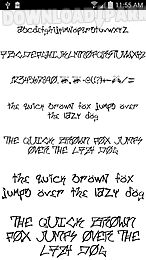 11:55 AM
DOWNLOADAPK
abcdefghijklmnopqrstuvwxyz
ABCDEFGHIJKLMNOPQRSTUVWXYZ
the quick brown fox
jumps over the lazy dog
THE QUICK BROWN
FOX JUMPS OVER THE
LAZY DOG
the quick brown fox
jumps over the
lazy dog
THE QUICK BROWN
FOX JUMPS OVER THE
LAZY DOG